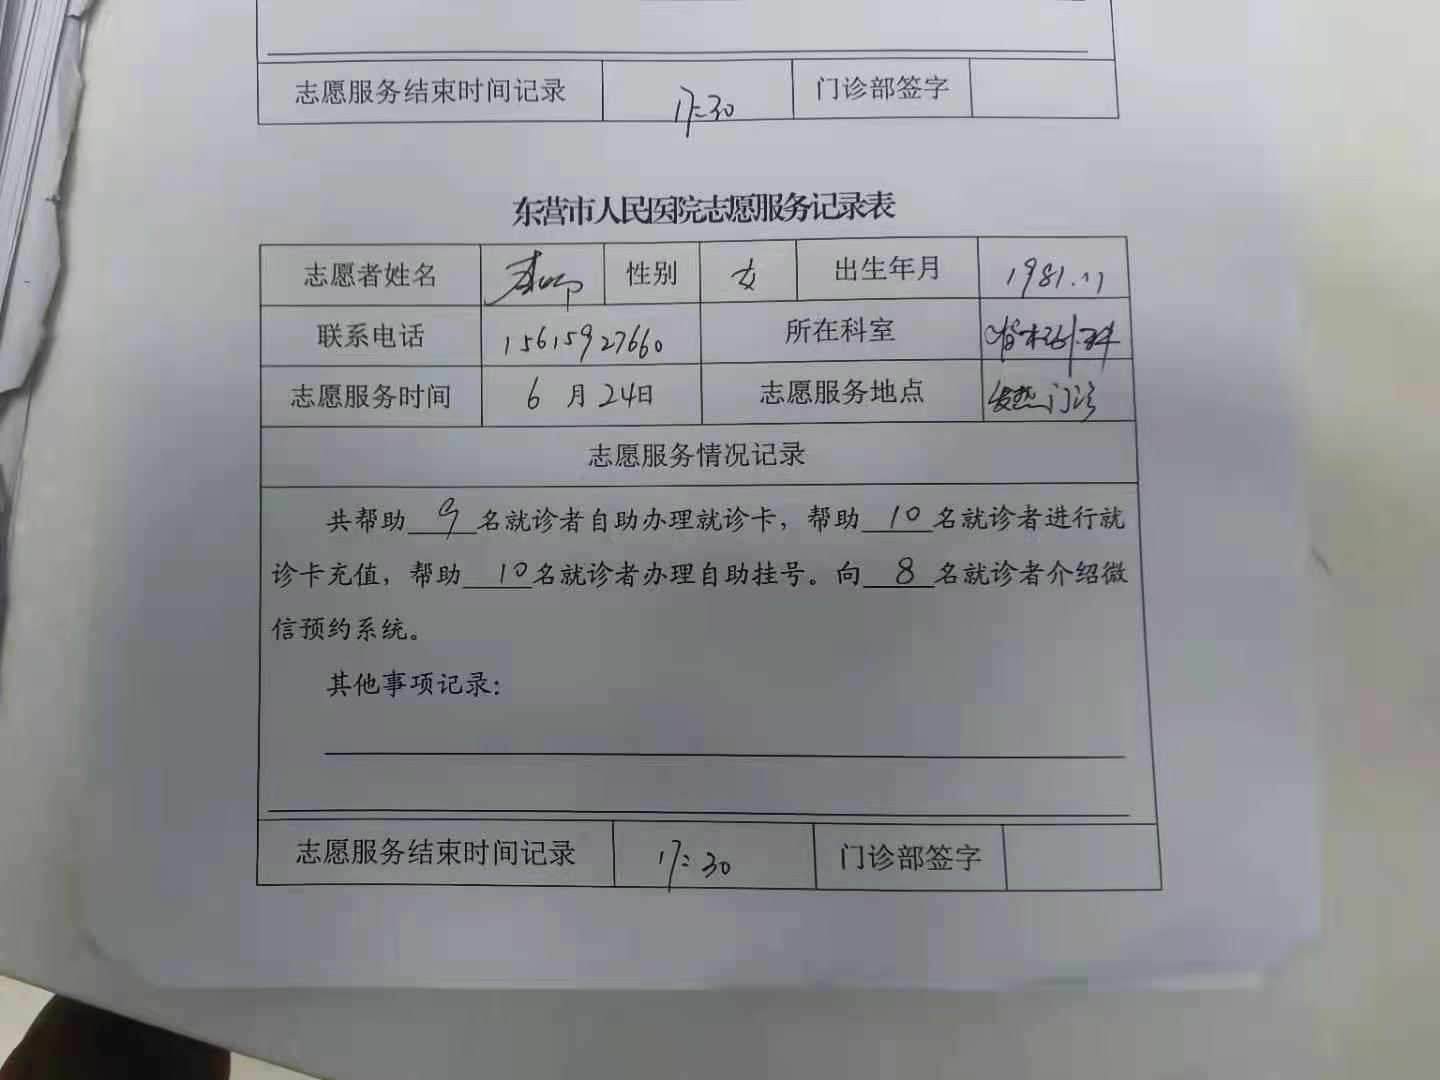 志愿服务结束时间记录 17:30 门诊部签字
东营市人民医院志愿服务记录表
志愿者姓名 性别 女 出生年月 1981.11
联系电话 15615927660 所在科室
志愿服务时间 6 月 24日 志愿服务地点 发热门诊
志愿服务情况记录
共帮助 9 名就诊者自助办理就诊卡，帮助 10 名就诊者进行就
诊卡充值，帮助 10 名就诊者办理自助挂号。向 8 名就诊者介绍微
信预约系统。
其他事项记录：
志愿服务结束时间记录 17:30 门诊部签字